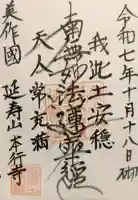 令和七年十月十八日
我此土安穏
南無妙法蓮華経
天人常充満
美作國
延寿山本行寺